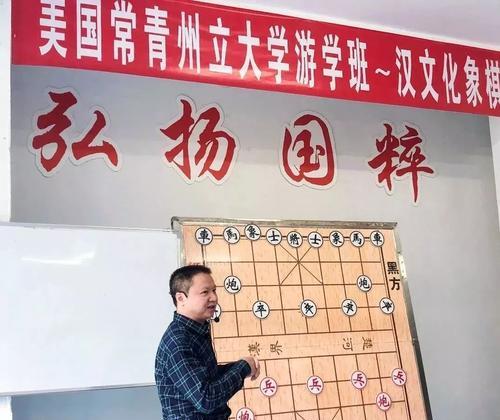 美国常青州立大学游学班~汉文化象棋
弘扬国粹
車馬象士將士象馬車
黑方
炮 炮
卒 卒 卒 卒
界 河
兵 兵 兵
炮